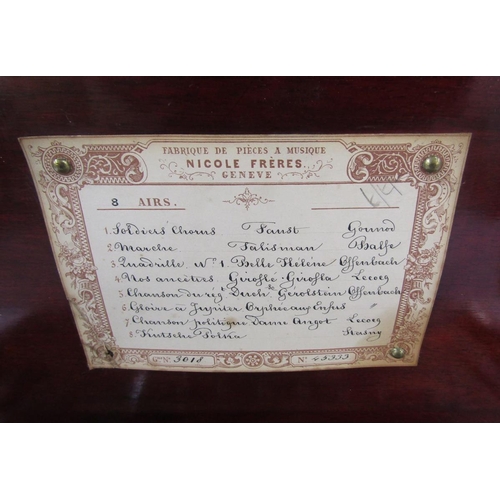 FABRIQUE DE PIÈCES A MUSIQUE
NICOLE FRÈRES
GENEVE
8 AIRS.
1. Soldiers' Chorus Faust Gounod
2 Marche Talisman Balfe
3 Quadrille No 1 Belle Hélène Offenbach
4 Nos ancêtres Giroflé-Girofla Lecocq
5 Chanson du régt Duchse Gerolstein Offenbach
6 Gloire à Jupiter Orphée aux Enfers "
7 Chanson politique Dame Angot Lecocq
8 Polka Stasny
No 3618 No 45333